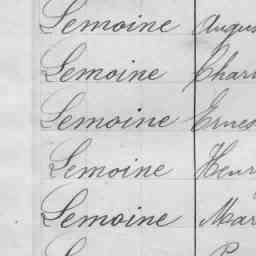 Lemoine Augus
Lemoine Char
Lemoine Ernes
Lemoine Henr
Lemoine Mar